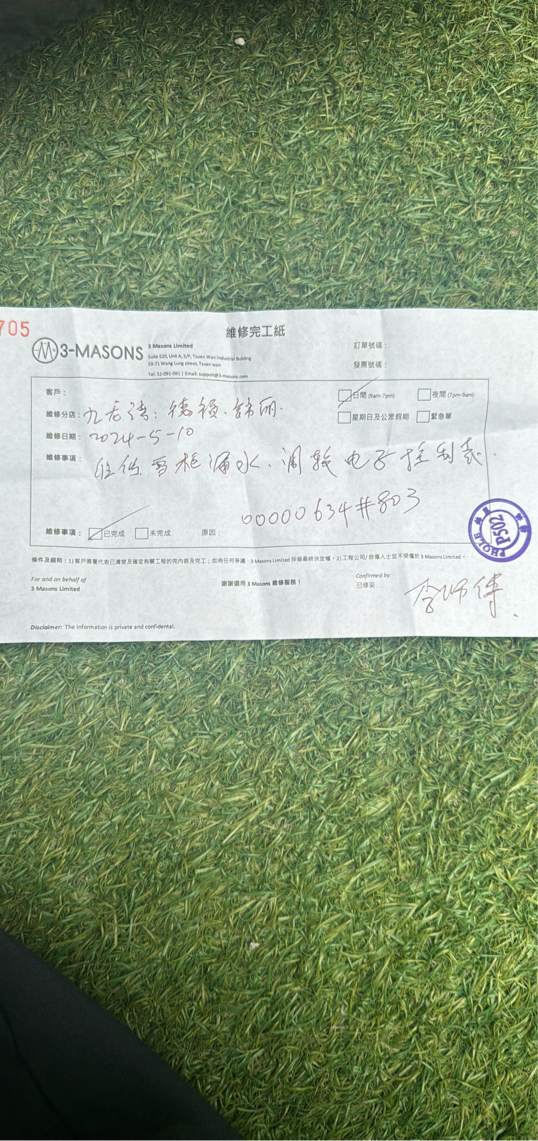 705
維修完工紙
3-MASONS
3 Masons Limited
Suite 520, Unit A, 5/F, Tsuen Wan Industrial Building
59-71 Wang Lung street, Tsuen wan
Tel: 51-091-091 | Email: support@3-masons.com
訂單號碼：
發票號碼：
客戶：
日間 (9am-7pm) 夜間 (7pm-9am)
維修分店：九老湾：德
星期日及公眾假期 緊急單
維修日期：2024-5-10
維修事項：
雪柜漏水、调較电子控制表.
00000634#803
維修事項： 已完成 未完成 原因：
PHOPE P502
條件及細則：1) 客戶簽署代表已清楚及確定有關工程的完內容及完工；如有任何爭議，3 Masons Limited 保留最終決定權。2) 工程公司/自僱人士並不受僱於 3 Masons Limited。
For and on behalf of
3 Masons Limited
謝謝選用 3 Masons 維修服務！
Confirmed by:
已修妥
李师傅
Disclaimer: The information is private and confidental.